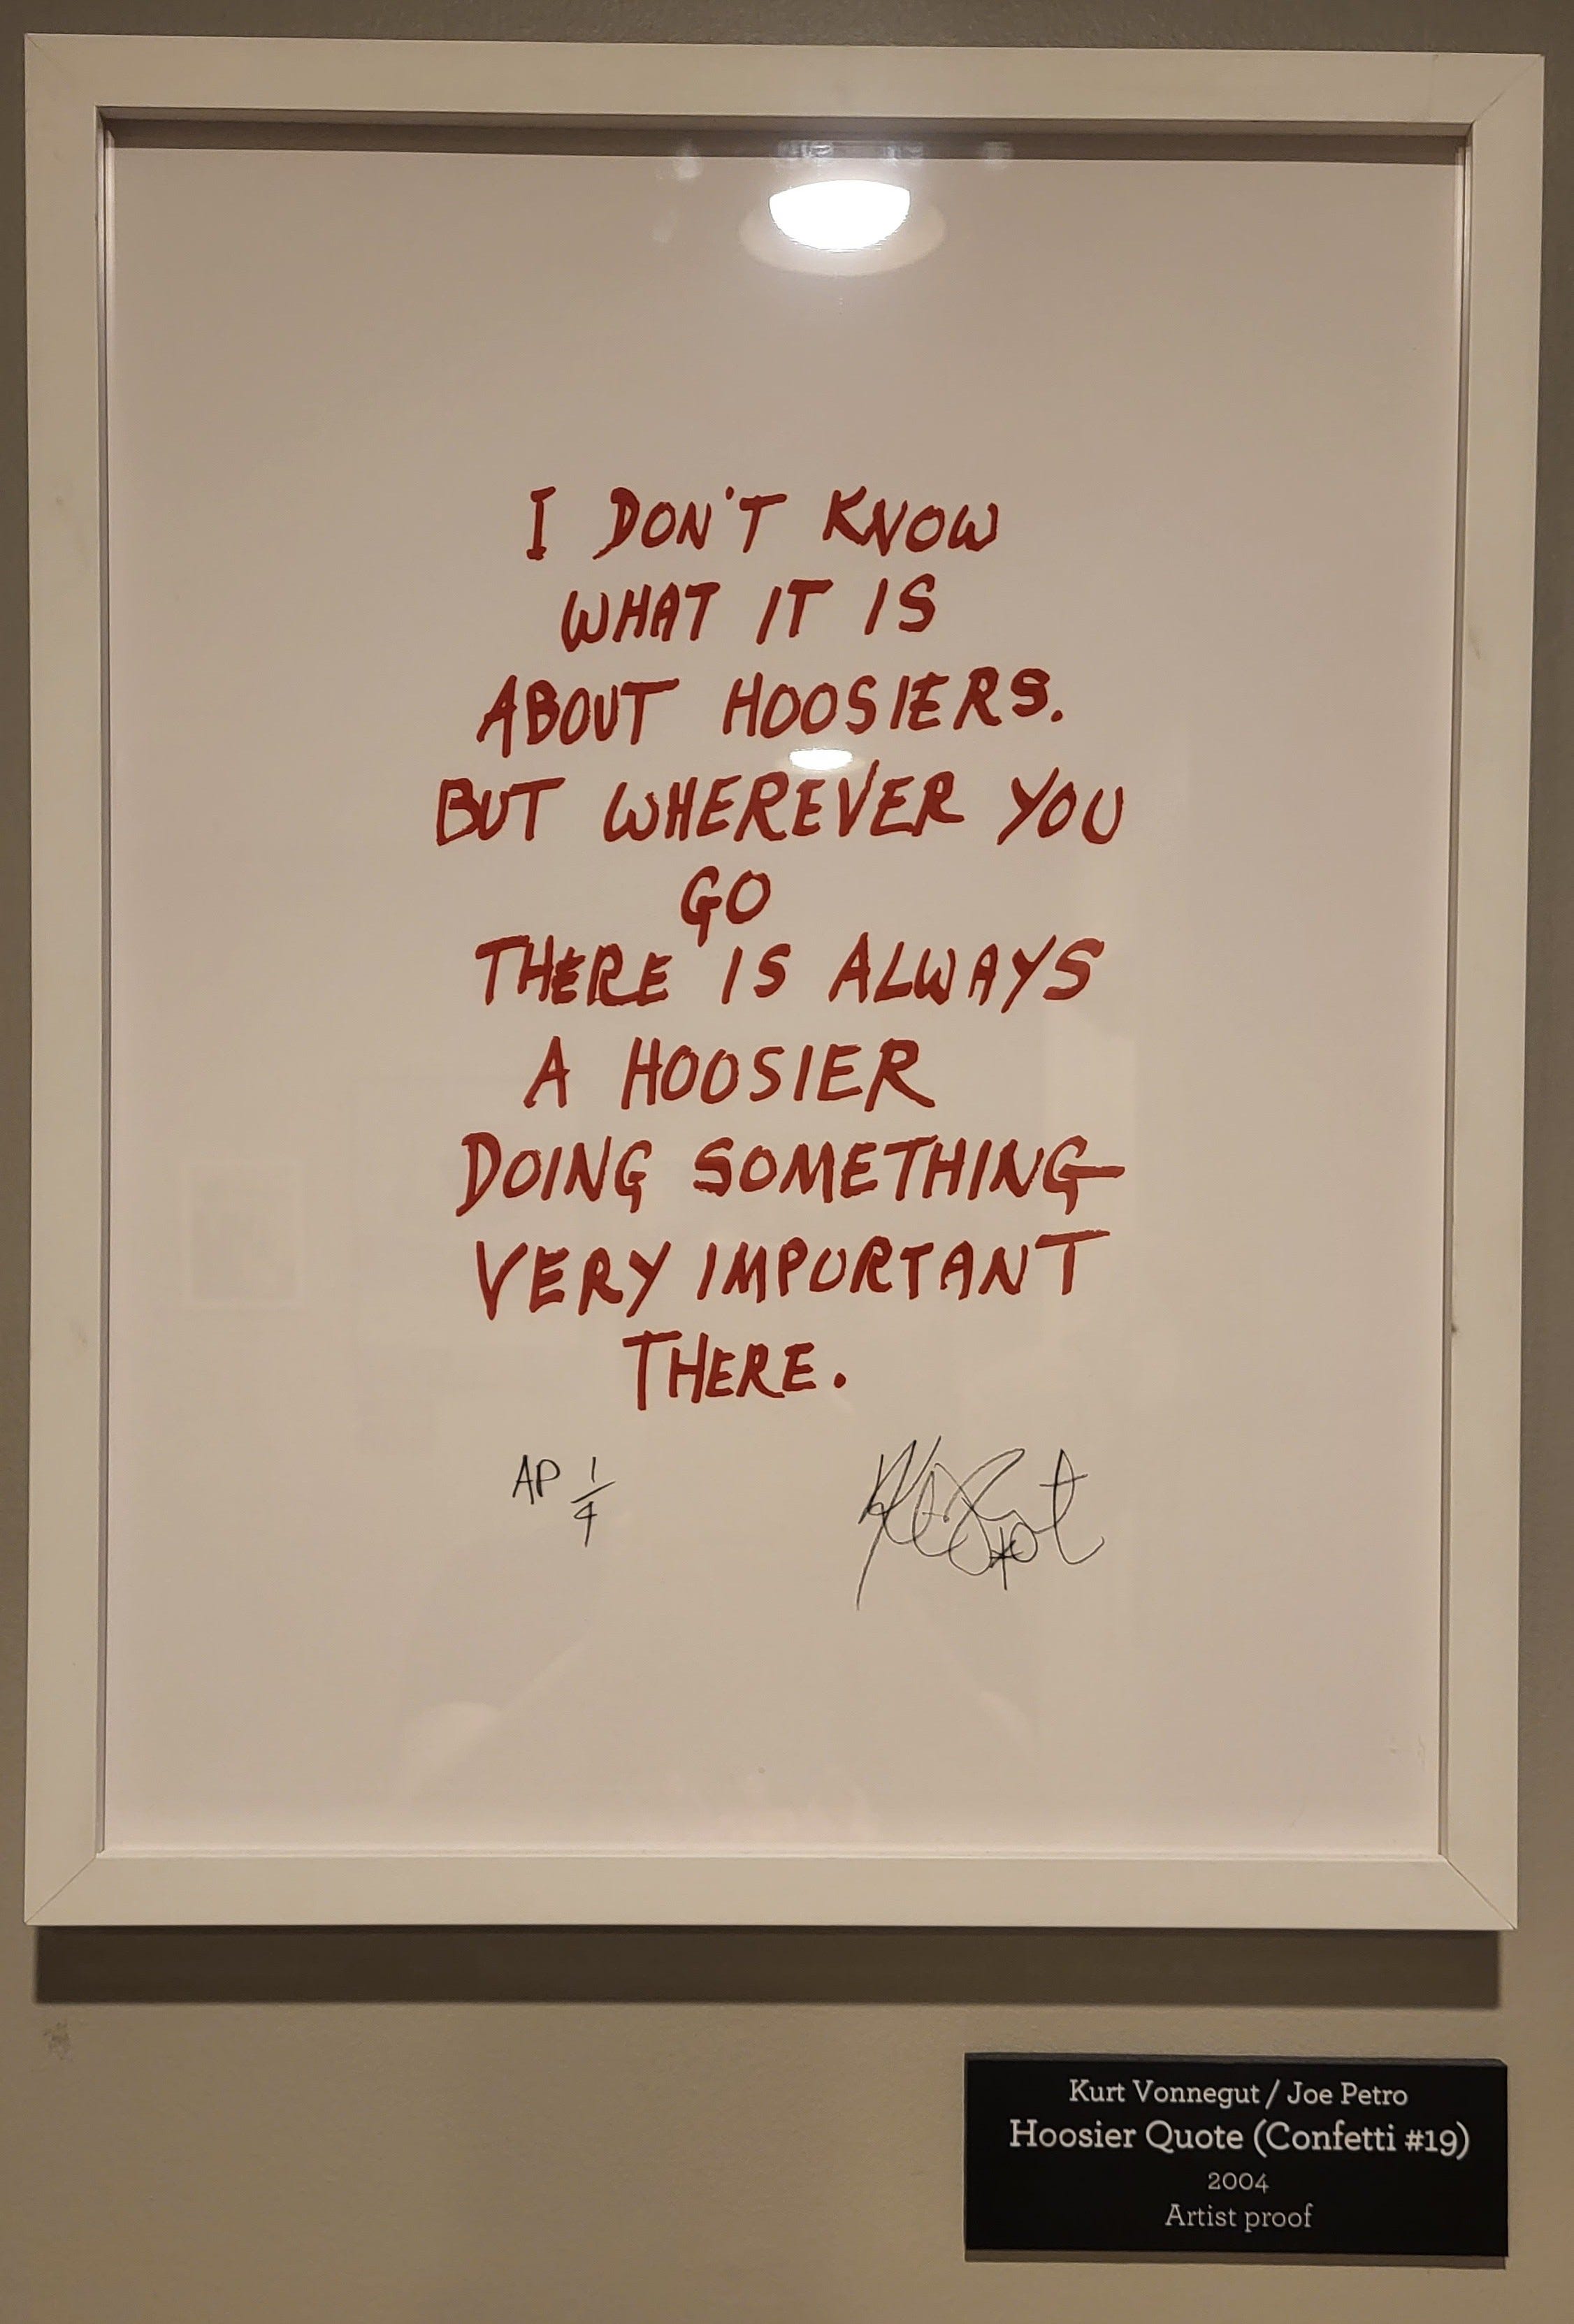 I DON'T KNOW
WHAT IT IS
ABOUT HOOSIERS.
BUT WHEREVER YOU
GO
THERE IS ALWAYS
A HOOSIER
DOING SOMETHING
VERY IMPORTANT
THERE.
AP 1/4
Kurt Vonnegut / Joe Petro
Hoosier Quote (Confetti #19)
2004
Artist proof